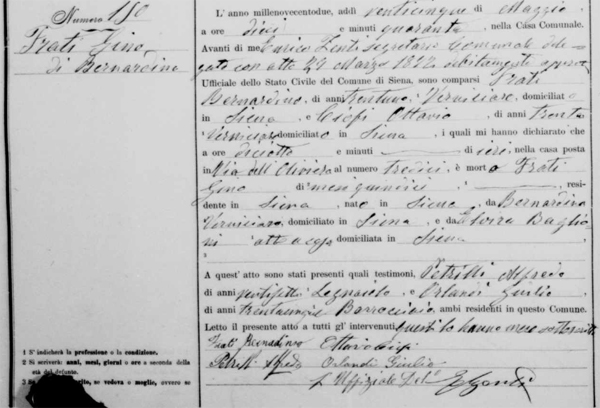 Numero 150
Frati Gino
di Bernardino
L' anno millenovecentodue, addì venticinque di Maggio
a ore dieci e minuti quaranta, nella Casa Comunale.
Avanti di me Enrico Zenti Segretario Comunale dele-
gato con atto 29 Marzo 1892 debitamente approv
Ufficiale dello Stato Civile del Comune di Siena, son comparsi Frati
Bernardino, di anni trentuno, Verniciaro, domiciliato
in Siena e Ciofi Ottavio di anni trenta
Verniciaro domiciliato in Siena, i quali mi hanno dichiarato che
a ore diciotto e minuti di ieri, nella casa posta
in Via dell' Oliviera al numero tredici, è morto Frati
Gino di mesi quindici, resi-
dente in Siena, nato in Siena, da Bernardino
Verniciaro, domiciliato in Siena e da Elvira Baglio-
ni atte a casa domiciliata in Siena
A quest' atto sono stati presenti quali testimoni, Petrilli Alfredo
di anni ventisette Legnaiolo, e Orlandi Giulio
di anni Barrocciaio, ambi residenti in questo Comune.
Letto il presente atto a tutti gl' intervenuti, questi lo hanno meco sottoscritto
Frati Bernardino Ottavio Ciofi
Petrilli Alfredo Orlandi Giulio
L' Uffiziale Del°
1 S' indicherà la professione o la condizione.
2 Si scriverà: anni, mesi, giorni o ore a seconda della
età del defunto.
3 se vedova o moglie, ovvero se